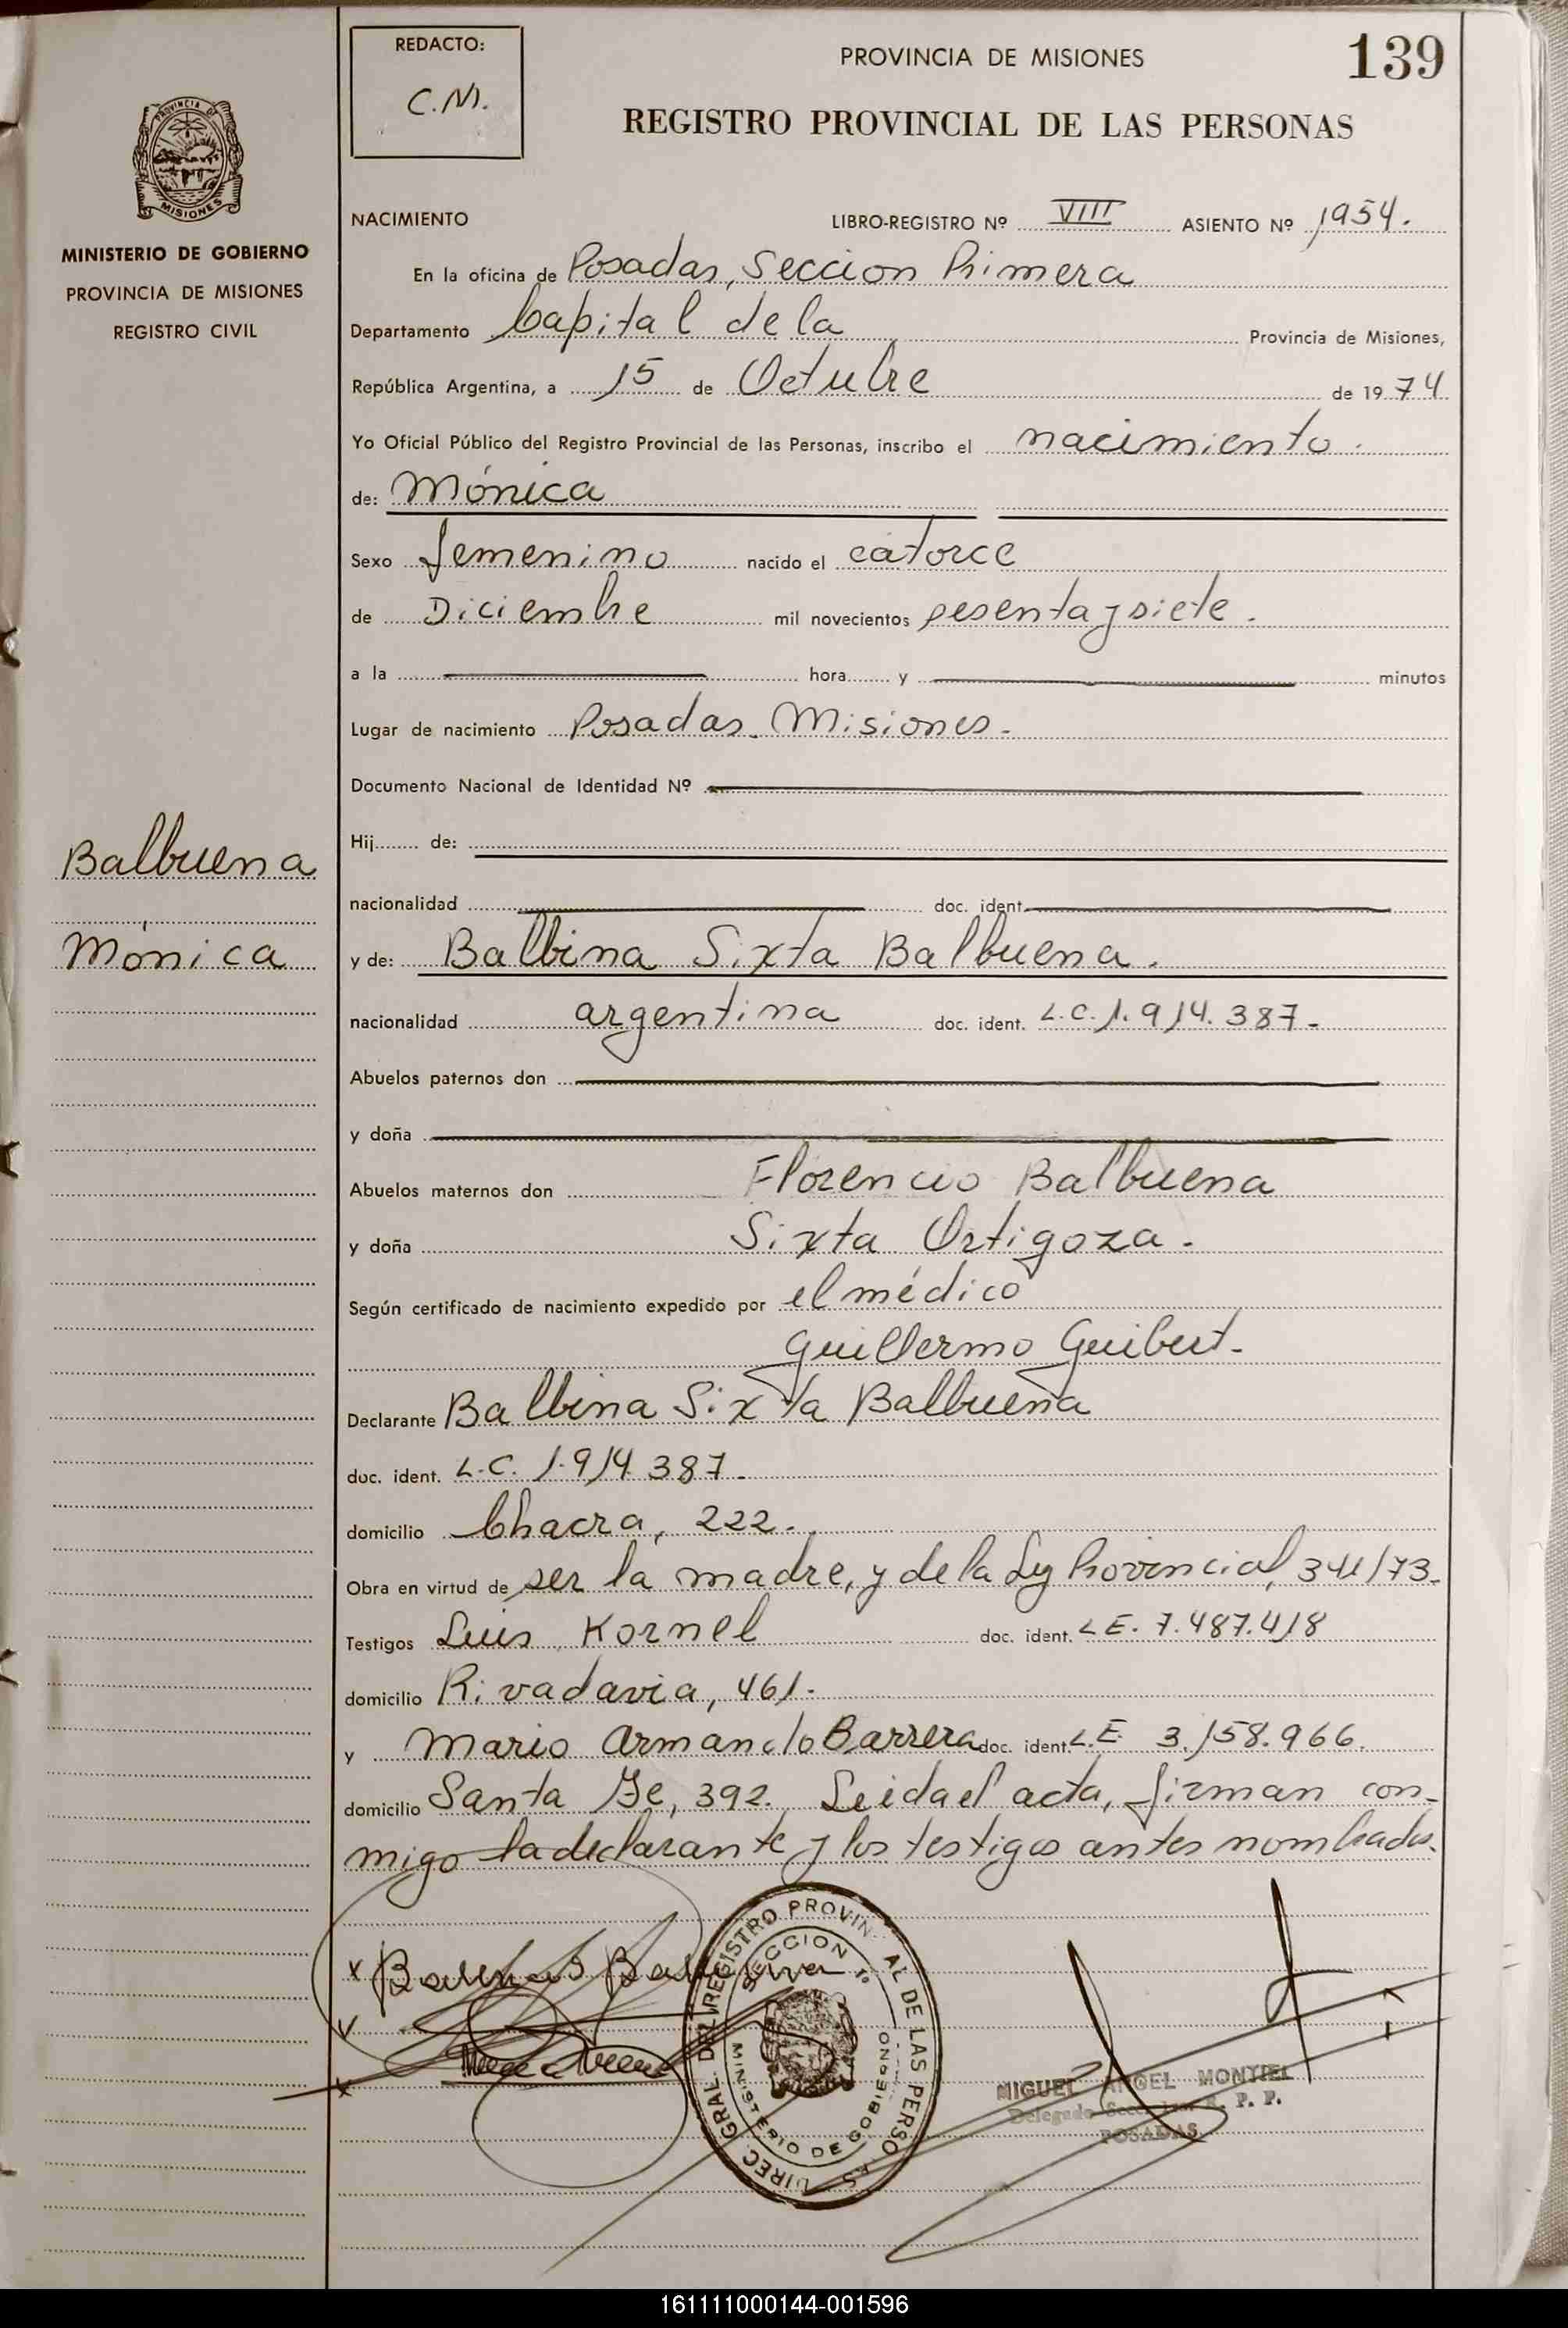 REDACTO:
C.M.
PROVINCIA DE MISIONES
139
REGISTRO PROVINCIAL DE LAS PERSONAS
PROVINCIA DE
MISIONES
MINISTERIO DE GOBIERNO
PROVINCIA DE MISIONES
REGISTRO CIVIL
NACIMIENTO LIBRO-REGISTRO Nº VIII ASIENTO Nº 1954.
En la oficina de Posadas, Seccion Primera
Departamento Capital de la Provincia de Misiones,
República Argentina, a 15 de Octubre de 1974
Yo Oficial Público del Registro Provincial de las Personas, inscribo el nacimiento.
de: Mónica
Sexo femenino nacido el catorce
de Diciembre mil novecientos sesenta y siete.
a la hora y minutos
Lugar de nacimiento Posadas. Misiones.
Documento Nacional de Identidad Nº
Hij de:
nacionalidad doc. ident.
Balbuena
Mónica
y de: Balbina Sixta Balbuena.
nacionalidad argentina doc. ident. L.C. 1.914.387-
Abuelos paternos don
y doña
Abuelos maternos don Florencio Balbuena
y doña Sixta Ortigoza.
Según certificado de nacimiento expedido por el médico
Guillermo Guibert.
Declarante Balbina Sixta Balbuena
doc. ident. L.C. 1.914.387.
domicilio Chacra, 222.
Obra en virtud de ser la madre, y de la Ley Provincial, 341/73.
Testigos Luis Kornel doc. ident. L E. 7.487.418
domicilio Rivadavia, 461.
y Mario Armando Barrera doc. ident. L.E 3.158.966.
domicilio Santa Fe, 392. Leida el acta, firman con-
migo la declarante y los testigos antes nombrados.
DIREC. GRAL. DEL REGISTRO PROVIN AL DE LAS PERSO ES
SECCION 1º
MINISTERIO DE GOBIERNO
MIGUEL ANGEL MONTIEL
Delegado R. P. P.
POSADAS
161111000144-001596